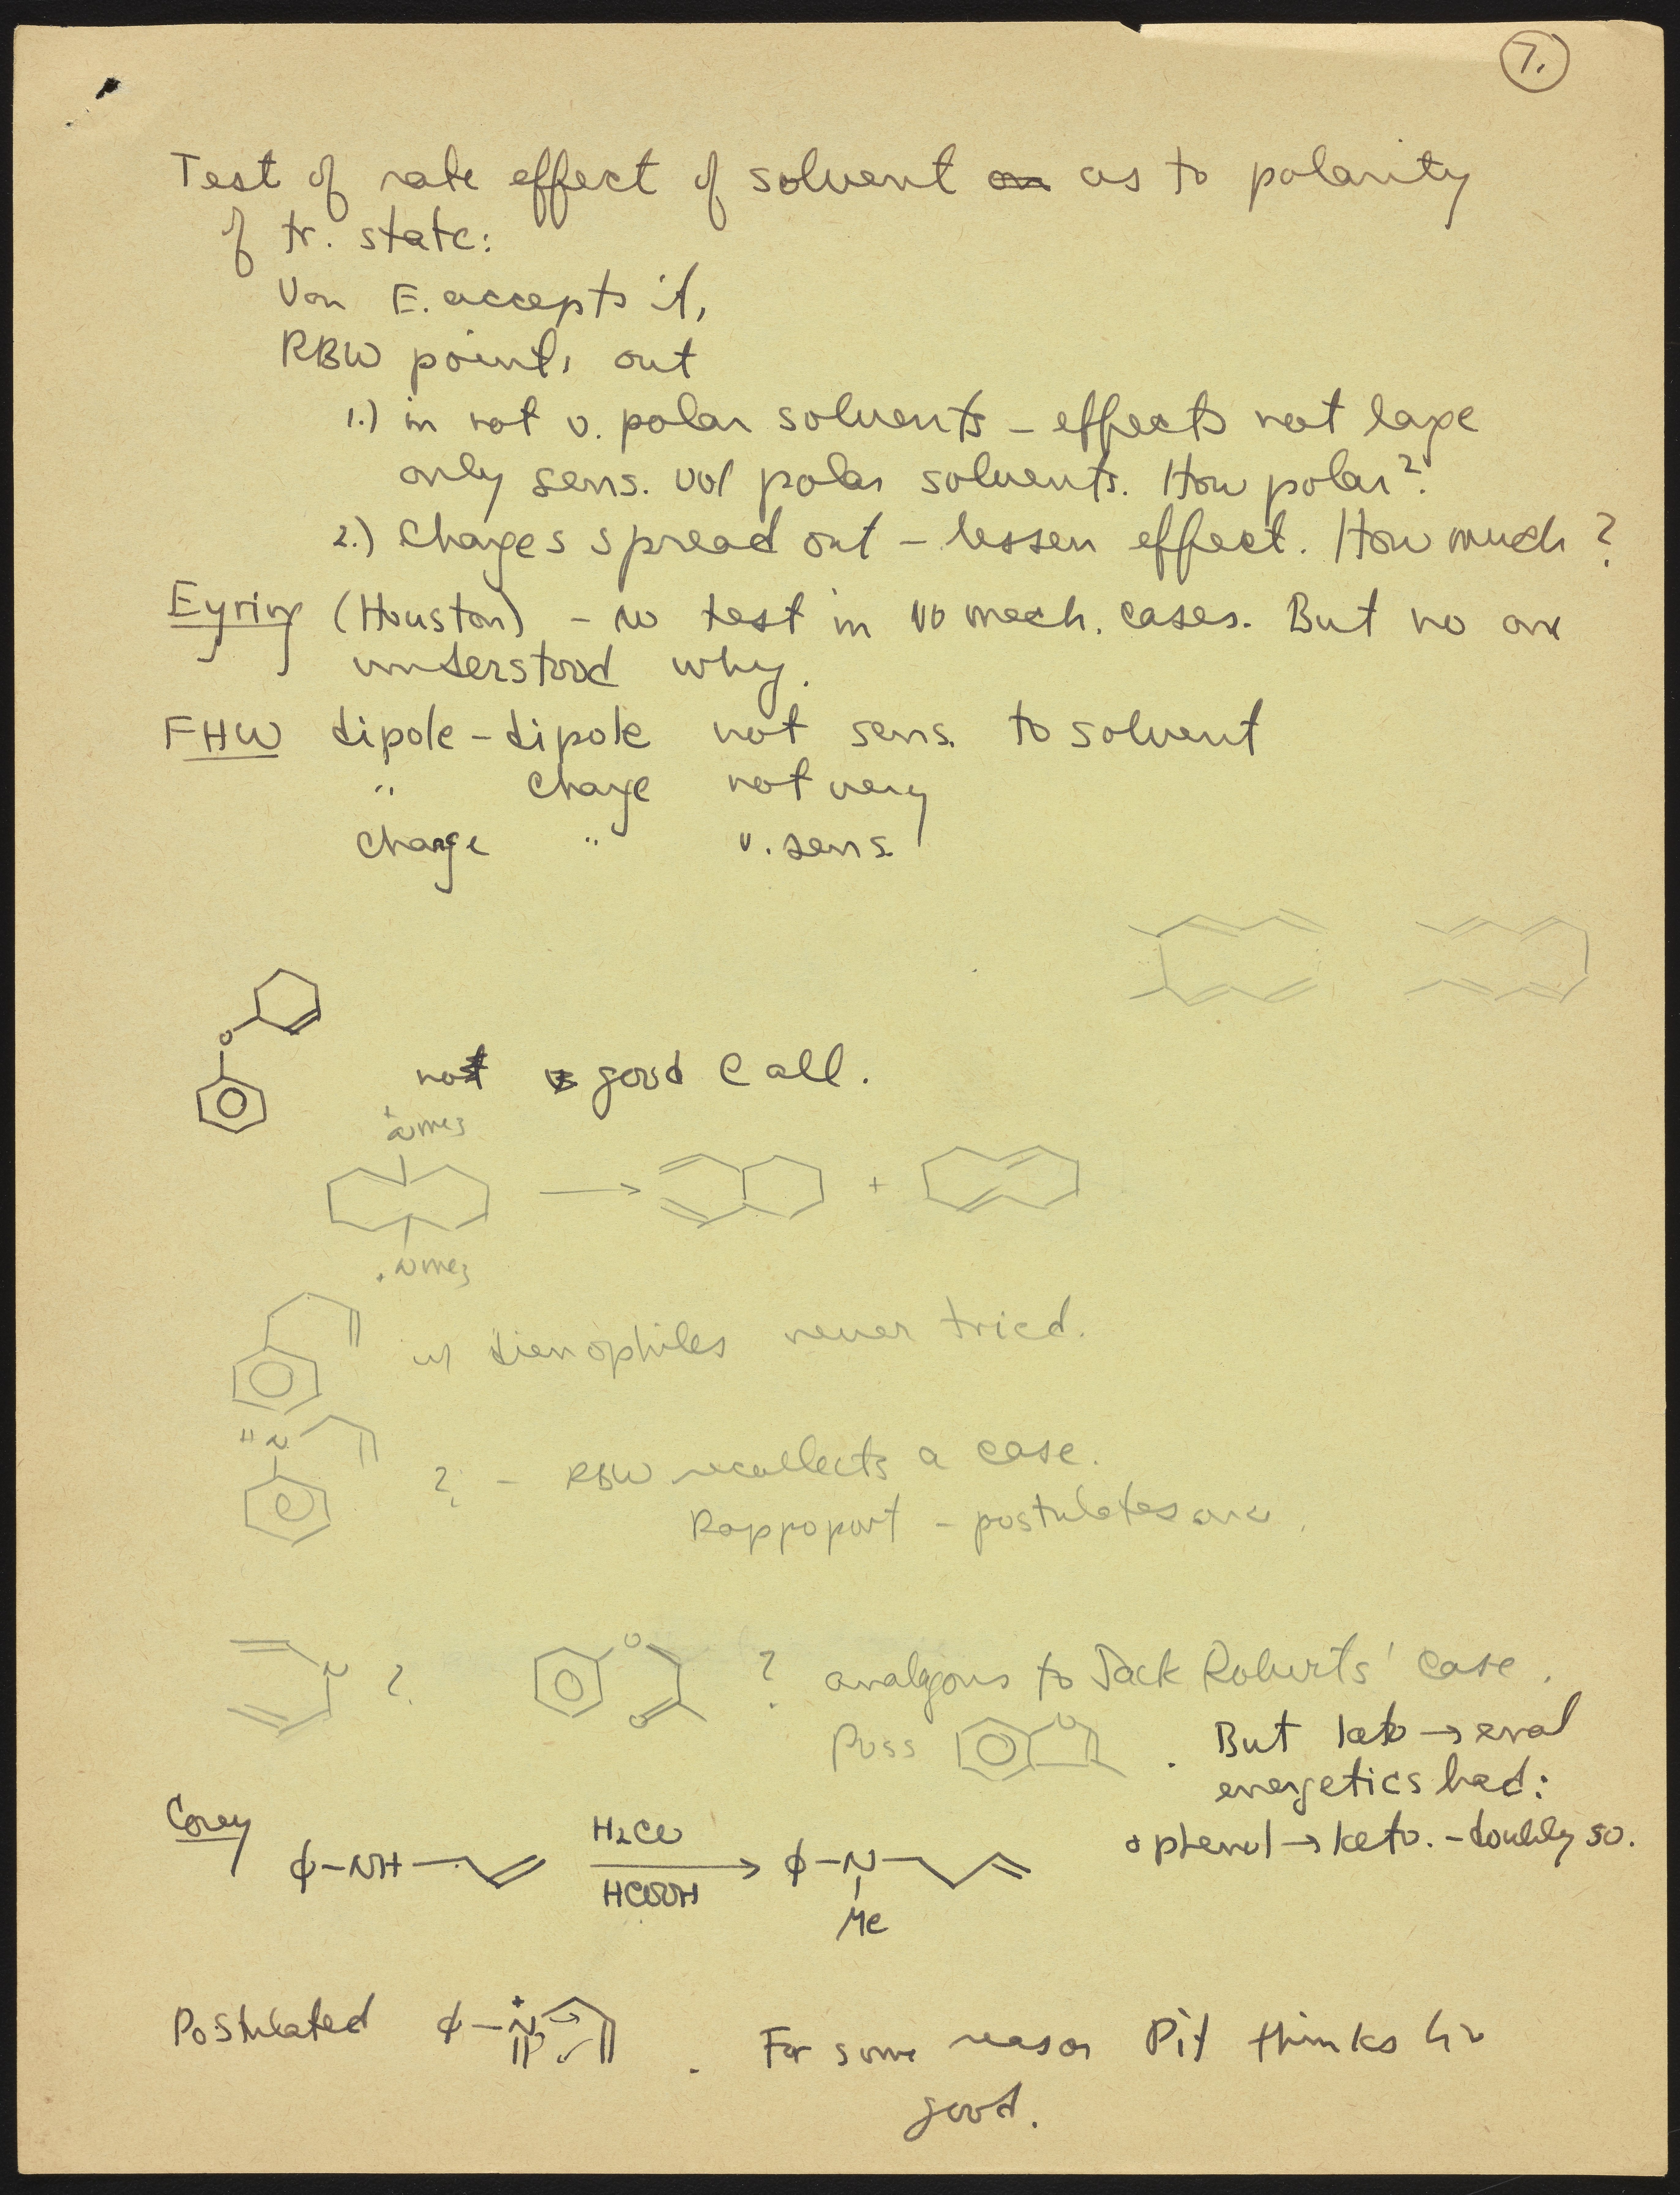 7.
Test of rate effect of solvent on as to polarity
of tr. state:
Von E. accepts it,
RBW points out
1.) in not v. polar solvents – effects not large
only sens. w/ polar solvents. How polar?
2.) Charges spread out – lessen effect. How much?
Eyring (Houston) – no test in no mech. cases. But no one
understood why.
FHW dipole-dipole not sens. to solvent
" charge not very
charge " v. sens.
O
not good call.
+NMe3
→ +
+NMe3
w/ dienophiles never tried.
HN
? – RBW recollects a case.
Rappoport – postulates one.
N ? O O ? analogous to Jack Roberts' case.
Poss O . But keto → enol
energetics bad:
phenol → keto. – doubly so.
Corey
ϕ–NH H2CO HCOOH → ϕ–N
Me
Postulated ϕ–N+ . For some reason Pit thinks
good.